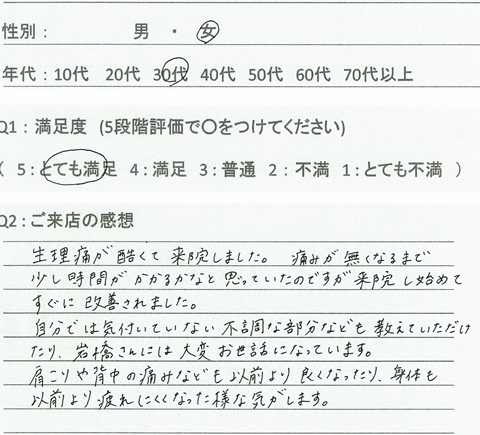 性別： 男 ・ 女
年代：10代 20代 30代 40代 50代 60代 70代以上
Q1：満足度 (5段階評価で〇をつけてください)
( 5：とても満足 4：満足 3：普通 2：不満 1：とても不満 )
Q2：ご来店の感想
生理痛が酷くて来院しました。 痛みが無くなるまで
少し時間がかかるかなと思っていたのですが来院し始めて
すぐに改善されました。
自分では気付いていない不調な部分なども教えていただけ
たり、岩橋さんには大変お世話になっています。
肩こりや背中の痛みなども以前より良くなったり、身体も
以前より疲れにくくなった様な気がします。